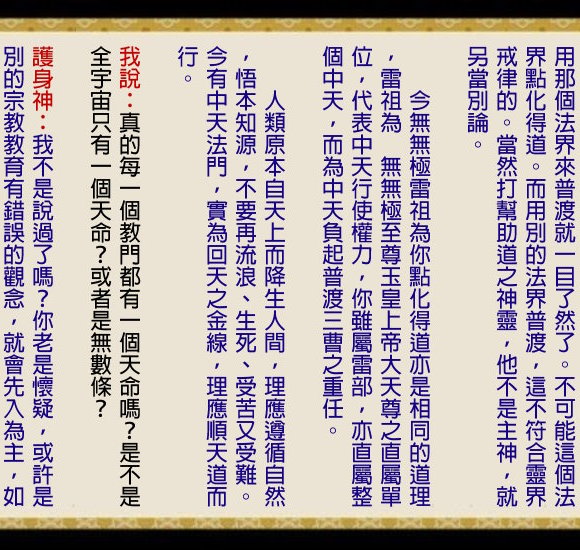 用那個法界來普渡就一目了然了。不可能這個法
界點化得道。而用別的法界普渡，這不符合靈界
戒律的。當然打幫助道之神靈，他不是主神，就
另當別論。
今無無極雷祖為你點化得道亦是相同的道理
，雷祖為　無無極至尊玉皇上帝大天尊之直屬單
位，代表中天行使權力，你雖屬雷部，亦直屬整
個中天，而為中天負起普渡三曹之重任。
人類原本自天上而降生人間，理應遵循自然
，悟本知源，不要再流浪、生死、受苦又受難。
今有中天法門，實為回天之金線，理應順天道而
行。
我說：真的每一個教門都有一個天命嗎？是不是
全宇宙只有一個天命？或者是無數條？
護身神：我不是說過了嗎？你老是懷疑，或許是
別的宗教教育有錯誤的觀念，就會先入為主，如